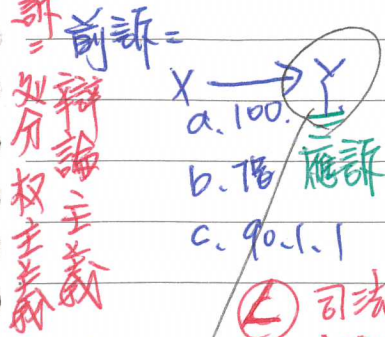 訴=
處分权主義
辯論主義
前訴=
X → Y
a. 100.
b. 借
應訴
c. 90.1.1
㊣ 司法